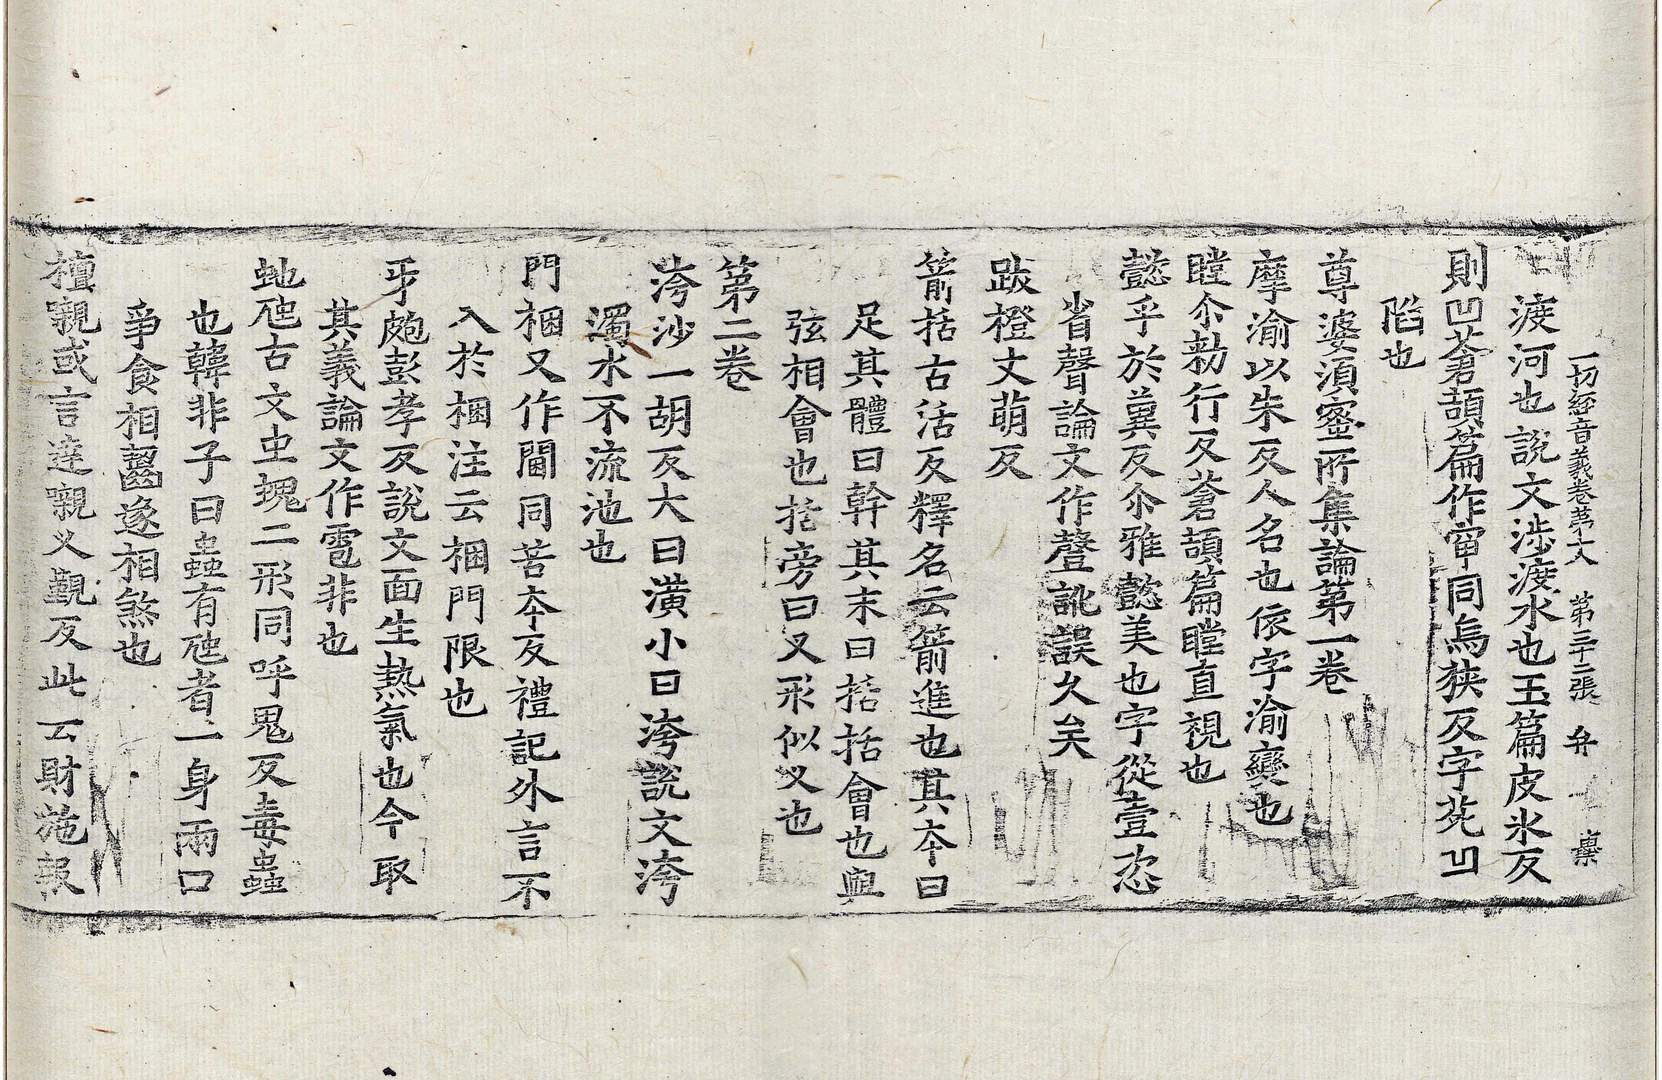 一切經音義卷第十八 第三十二張 弁
渡河也說文涉渡水也玉篇皮氷反
則凹蒼頡篇作窅同烏狹反字苑凹
陷也
尊婆須蜜所集論第一卷
摩渝以朱反人名也依字渝變也
瞠尒勑行反蒼頡篇瞠直視也
懿乎於冀反尒雅懿美也字從壹恣
省聲論文作謷訛誤久矣
跋橙丈萌反
箭括古活反釋名云箭進也其夲曰
足其體曰幹其末曰括括會也與
弦相會也括旁曰叉形似叉也
第二卷
洿沙一胡反大曰潢小曰洿說文洿
濁水不流池也
門梱又作閫同苦夲反禮記外言不
入於梱注云梱門限也
牙皰彭孝反說文面生熱氣也今取
其義論文作雹非也
虵虺古文䖝螝二形同呼鬼反毒蟲
也韓非子曰蟲有虺者一身兩口
爭食相齧遂相煞也
檀嚫或言達嚫叉覲反此云財施報